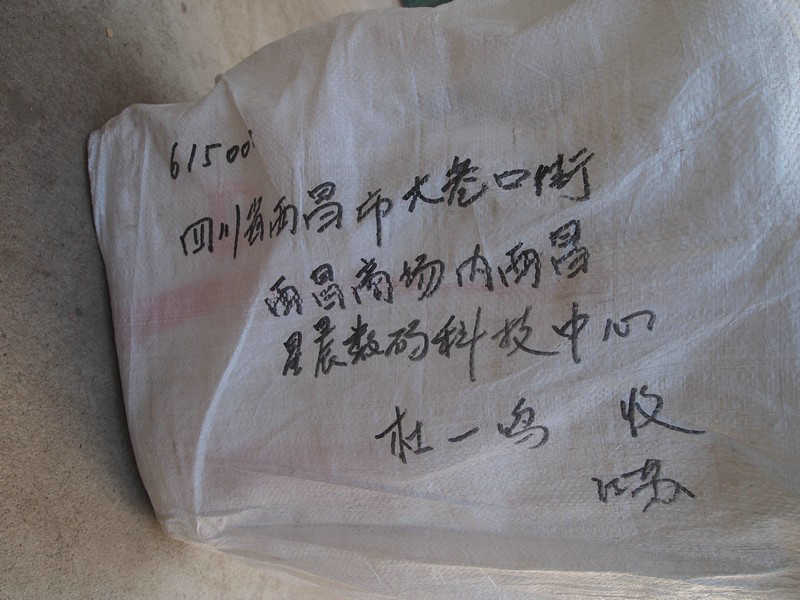 61500
四川省西昌市大巷口街
西昌商场内西昌
星晨数码科技中心
杜一鸣 收
江苏